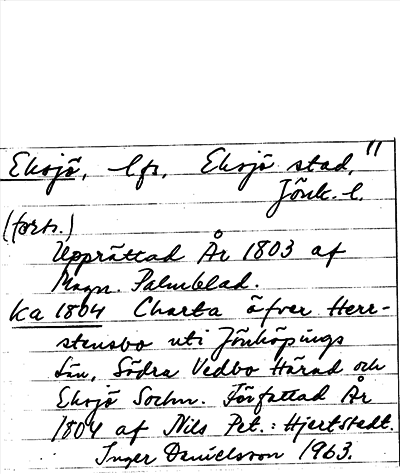 Eksjö, lfs, Eksjö stad, 11
Jönk. l.
(forts.)
Upprättad År 1803 af
Magn. Palmblad.
ka 1804 Charta öfver Herr-
stensbo uti Jönköpings
Län, Södra Vedbo Härad och
Eksjö Sochn. Författad År
1804 af Nils Pet.: Hjertstedt.
Inger Danielsson 1963.